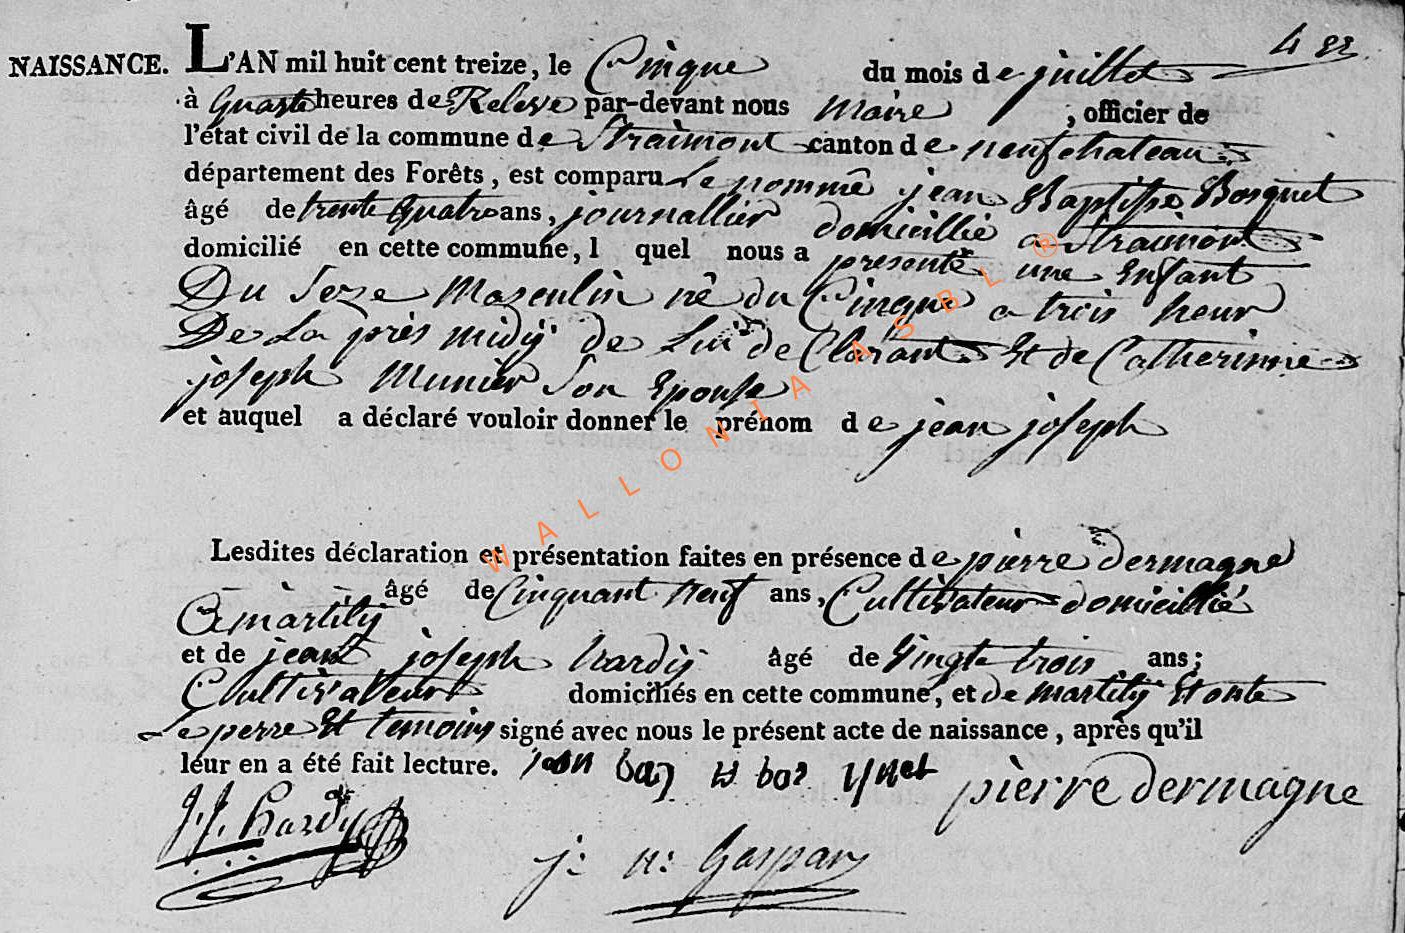 NAISSANCE. L'AN mil huit cent treize, le Cinque du mois de juillet
à Quatre heures de Releve par-devant nous Maire , officier de
l'état civil de la commune de Straimont canton de neufchateau
département des Forêts, est comparu Le nommé jean Baptiste Bosquet
âgé de trente quatre ans, journallier domicillié a Straimont
domicilié en cette commune, l quel nous a presenté une Enfant
Du Sexe Masculin né du Cinque a trois heur
De La près midÿ de Lui de Clarant Et de Catherinne
joseph Munier Son Epouse
et auquel a déclaré vouloir donner le prénom de jean joseph
Lesdites déclaration et présentation faites en présence de pierre dermagne
âgé de Cinquant neuf ans, Cultivateur domicillié
a martilÿ
et de jean joseph hardÿ âgé de Vingte trois ans;
Cultivateur domiciliés en cette commune, et de martilÿ Et onte
Le perre Et temoins signé avec nous le présent acte de naissance, après qu'il
leur en a été fait lecture. jean pierre dermagne
J.J. hardÿ
j: n: Gaspar
WALLONIA ASBL ®